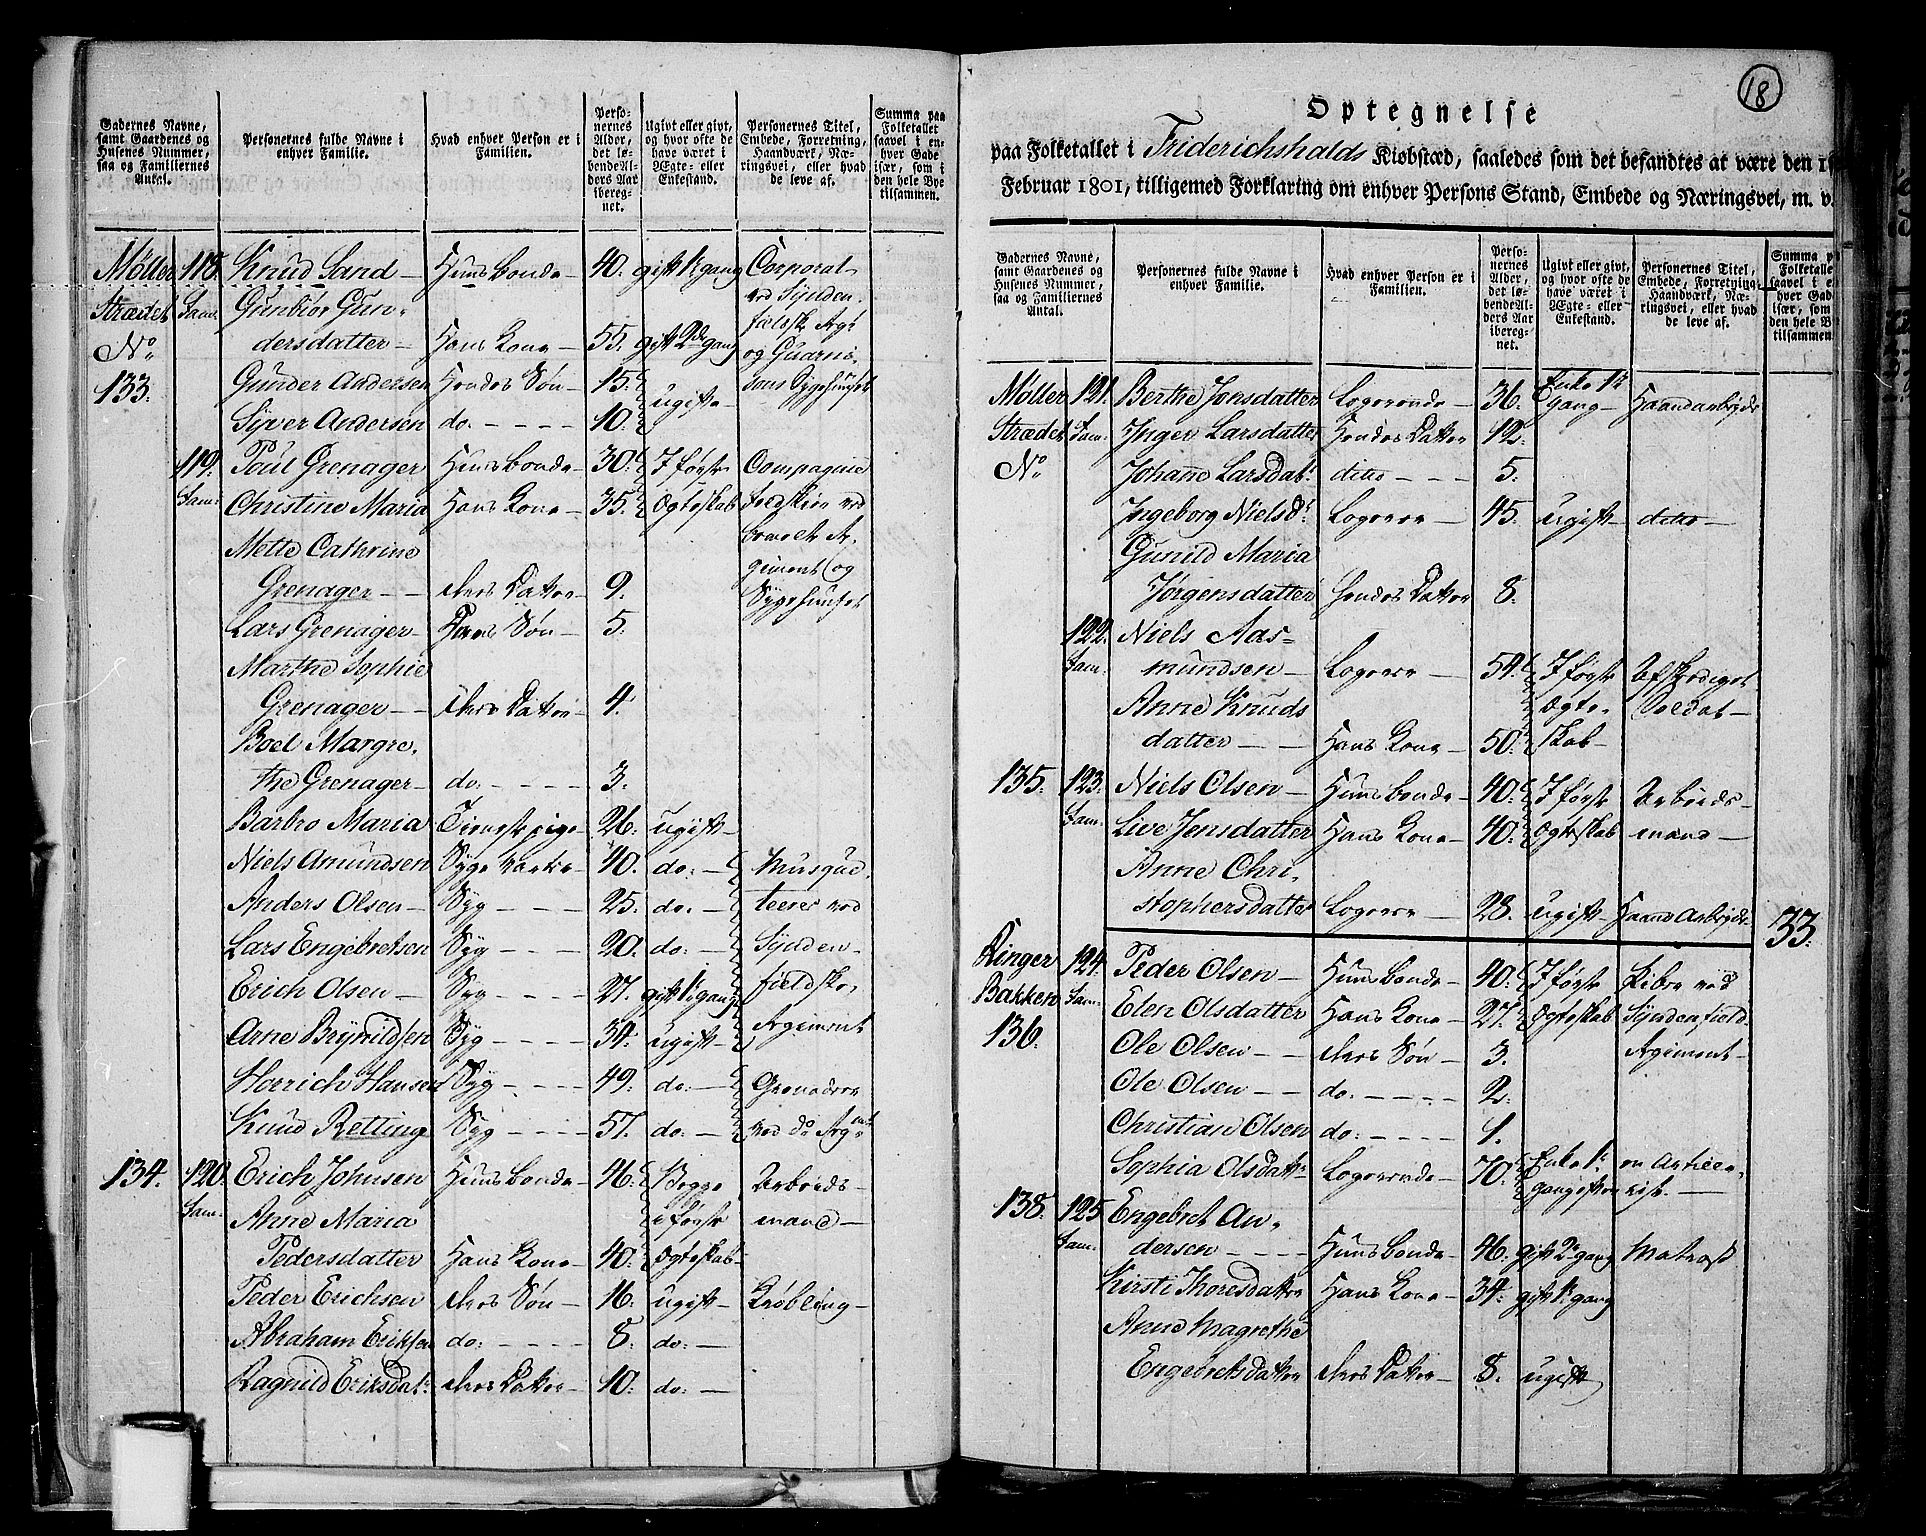 Gadernes Navne, samt Gaardenes og Husenes Nummer, saa og Familiernes Antal.
Personernes fulde Navne i enhver Familie.
Hvad enhver Person er i Familien.
Personernes Alder, det løbende Alders Aar iberegnet.
Ugivt eller givt, og hvor ofte de have været i Ægte- eller Enkestand.
Personernes Titel, Embede, Forretning, Haandværk, Næringsvei, eller hvad de leve af.
Summa paa Folketallet saavel i enhver Gade især, som i den hele Bye tilsammen.
Møller 118. Knud Sand — Huusbonde 40. gift 1te gang Corporal
Strædet Fam: Gunbiör Gun- ved Synden-
No dersdatter — Hans Kone — 55. gift 2de gang fieldske Rgt
133. Gunder Andersen Hendes Søn — 15. ugifte og Guarni-
Syver Andersen do. — — — 10. sons Sygehuuset
119. Poul Grenager Huusbonde — 30. I første Compagnie
Fam: Christine Maria Hans Kone — 35. Egteskab feldskier ved
Mette Cathrine bemelte Re-
Grenager — — deres Datter 9. giment og
Lars Grenager — Søn — 5. Sygehuuset
Marthe Sophie
Grenager — — deres Datter — 4.
Boel Margre-
the Grenager — do. — — — 3.
Barbro Maria Tienestepige — 26. ugift —
Niels Amundsen Syge varter — 40. do: — Musque-
Anders Olsen — Syg — — — 25. do. — teerer ved
Lars Engebretsen Syg — — — 20. do: — Synden-
Erich Olsen — Syg — — — 27. gift 1te gang fieldske
Arne Brynildsen Syg — — — 34. ugift — Regiment
Henrich Hansen Syg — — — 49. do: — Grenaderer
Knud Retting Syg — — — 57. do: — ved do Rgmt
134. 120. Erich Johnsen Huusbonde — 46. Begge Arbeids-
Fam: Anne Maria i første mand —
Pedersdatter Hans Kone — 40. Egteskab —
Peder Erichsen deres Søn — 16. ugift — Krøbling —
Abraham Eriksen do: — — — 8. do: —
Ragnild Eriksdatr deres Datter — 10. do: —
18
Optegnelse
paa Folketallet i Friderichshalds Kiøbstæd, saaledes som det befandtes at være den 1
Februar 1801, tilligemed Forklaring om enhver Persons Stand, Embede og Næringsvei, m. v.
Gadernes Navne, samt Gaardenes og Husenes Nummer, saa og Familiernes Antal.
Personernes fulde Navne i enhver Familie.
Hvad enhver Person er i Familien.
Personernes Alder, det løbende Alders Aar iberegnet.
Ugivt eller givt, og hvor ofte de have været i Ægte- eller Enkestand.
Personernes Titel, Embede, Forretning, Haandværk, Næringsvei, eller hvad de leve af.
Summa Folketalle saavel i en hver Gade især, som den hele B tilsammen
Møller 121. Berthe Jonsdatter Logerende — 36. Enke 1te gang — Haandarbeyde
Strædet Fam: Inger Larsdatter Hendes Datter 12.
No Johane Larsdatr ditto — — — 5.
Ingeborg Nielsdr Logerer — 45. ugift ditto —
Gunild Maria
Jørgensdatter hendes Datter 8.
122. Niels Aas-
Fam: mundsen — Logerer — 54. I første Afskediget
Anne Knuds Egte- Soldat —
datter — — Hans Kone — 50. skab —
135. 123. Niels Olsen — Huusbonde — 40. I første Arbeids-
Fam: Live Jensdatter Hans Kone — 40. Egteskab mand —
Anne Chri-
stophersdatter Logerer — 28. ugift — Haand Arbeyde
33.
Ringer 124. Peder Olsen — Huusbonde — 40. I første ved
Bakken Fam: Elen Olsdatter Hans Kone — 27. Egteskab Syndenfield
136. Ole Olsen — — deres Søn — 3. Regiment —
Ole Olsen — — do: — — — 2.
Christian Olsen do: — — — 1.
Sophia Olsdatr Logerende — 70. Enke 1te gang efter en Artille-
rist. —
138. 125 Engebret An-
Fam: dersen — — — Huusbonde — 46. gift 2de gang Matros
Kirsti Thoresdatter Hans Kone — 34. gift 1te gang
Anne Magrethe
Engebretsdatter deres Datter — 8. ugift